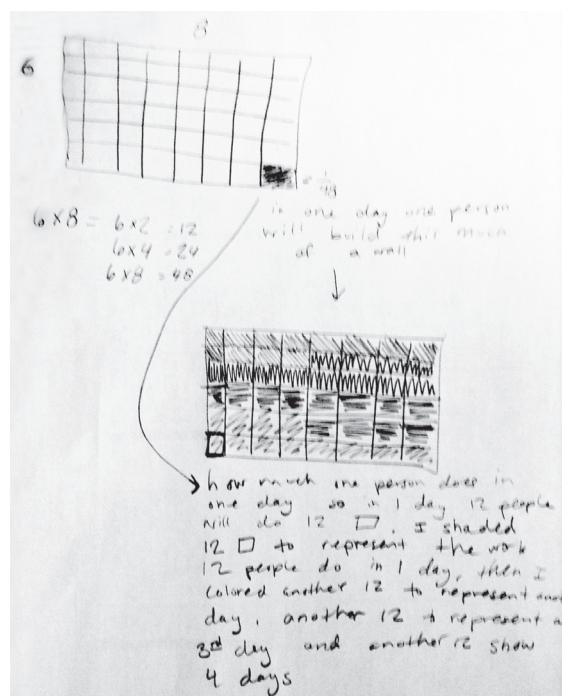 8
6
= 1/48
6x8 = 6x2 = 12
6x4 = 24
6x8 = 48
in one day one person
will build this much
of a wall
how much one person does in
one day so in 1 day 12 people
will do 12 □. I shaded
12 □ to represent the work
12 people do in 1 day, then I
colored another 12 to represent
day, another 12 to represent a
3rd day and another 12 show
4 days